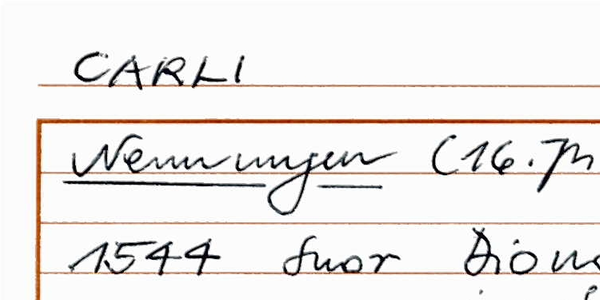 CARLI
Nennungen (16. Jh
1544 Suor Dion